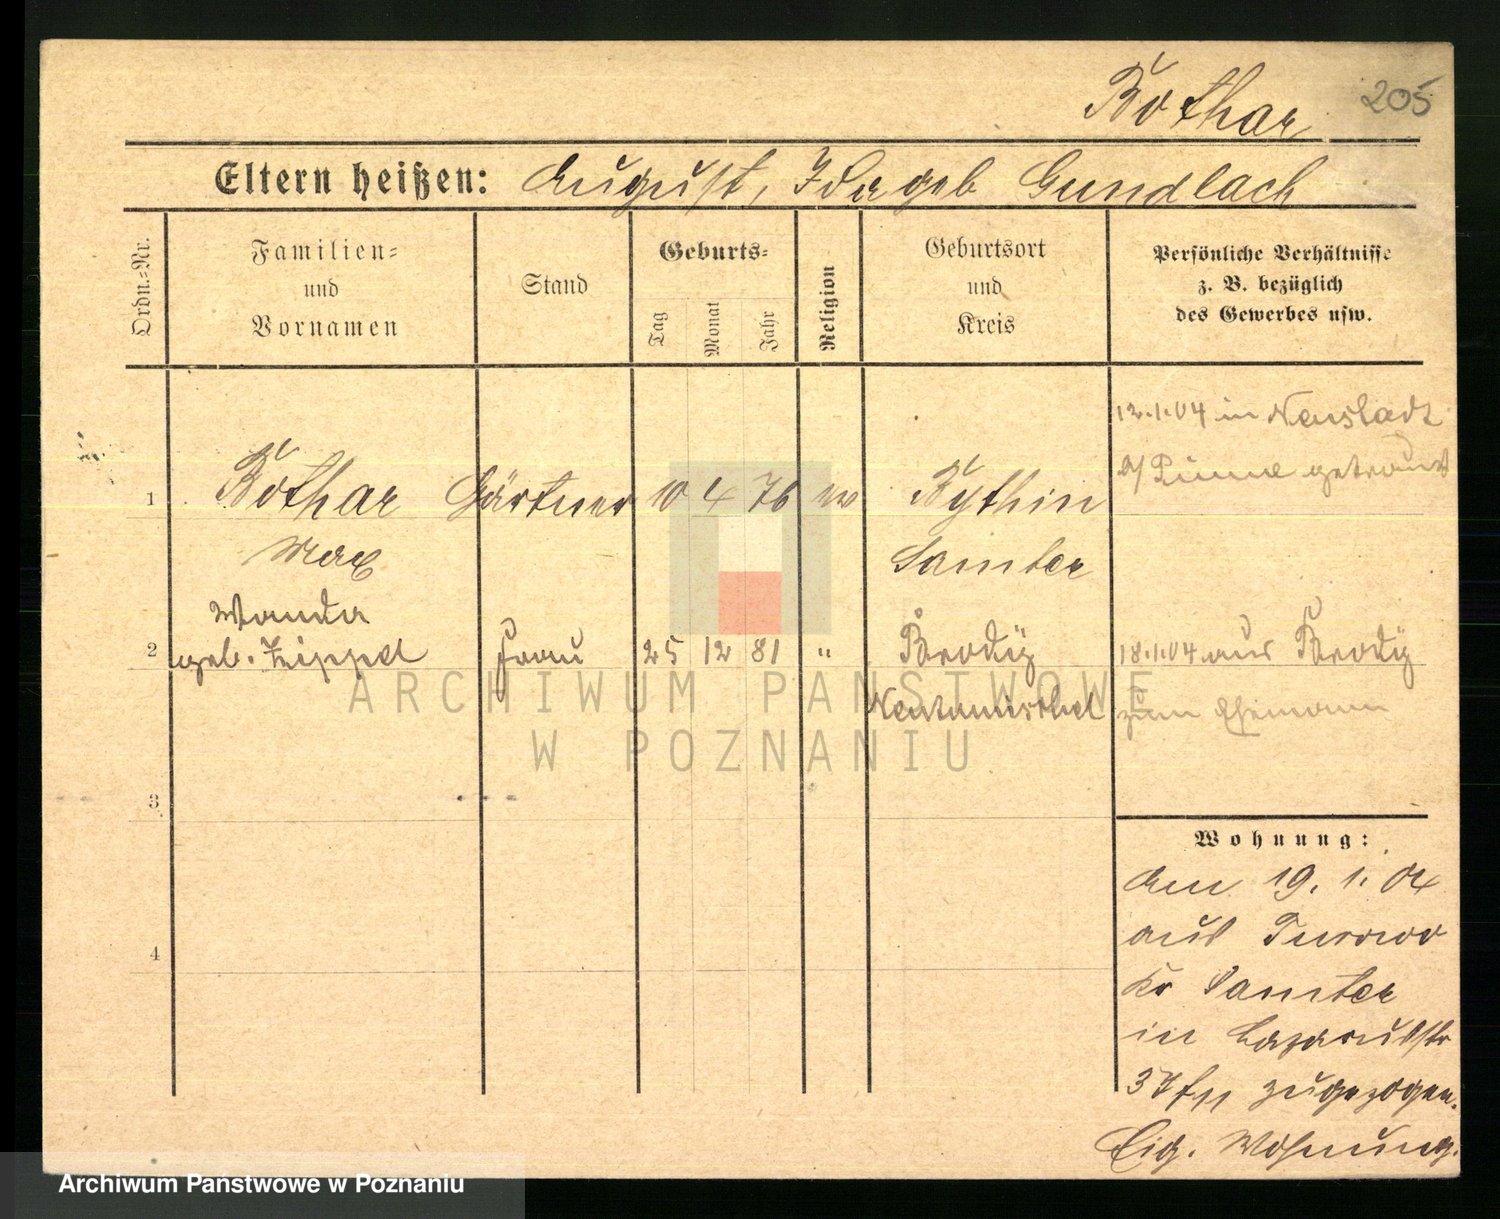 Bothar
205
Eltern heißen: August, Ida geb Gundlach
Ordn.-Nr.
Familien-
und
Vornamen
Stand
Geburts-
Tag
Monat
Jahr
Religion
Geburtsort
und
Kreis
Persönliche Verhältnisse
z. B. bezüglich
des Gewerbes usw.
12.1.04 in Neustadt
a/ Pinne getraut
1 Bothar Gärtner 10 4 76 ev Bythin
Max Samter
Wanda
2 geb. Zippel Frau 25 12 81 " Brodÿ 18.1.04 aus Brodÿ
Neutomischel zum Ehemann
3
Wohnung:
den 19. 1. 04
aus Turowo
Kr Samter
in Lazarusstr
zugezogen.
Eig. Wohnung.
4
ARCHIWUM PAŃSTWOWE
W POZNANIU
Archiwum Państwowe w Poznaniu